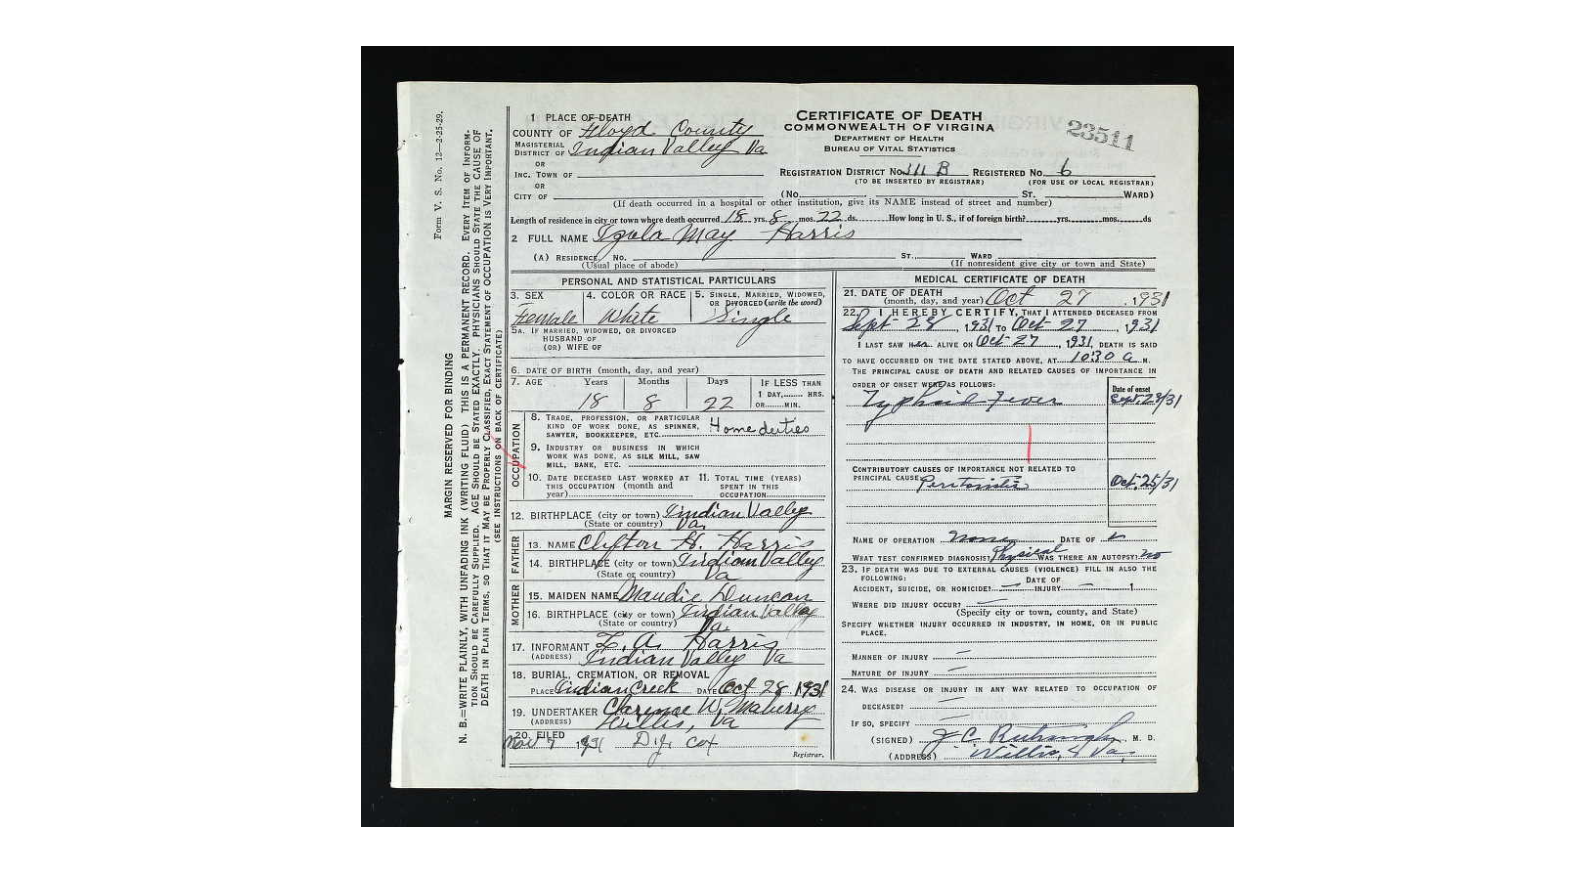 Form V. S. No. 12—3-25-29.
MARGIN RESERVED FOR BINDING
N. B.—WRITE PLAINLY, WITH UNFADING INK (WRITING FLUID) THIS IS A PERMANENT RECORD. EVERY ITEM OF INFORM-
TION SHOULD BE CAREFULLY SUPPLIED. AGE SHOULD BE STATED EXACTLY. PHYSICIANS SHOULD STATE THE CAUSE OF
DEATH IN PLAIN TERMS, SO THAT IT MAY BE PROPERLY CLASSIFIED. EXACT STATEMENT OF OCCUPATION IS VERY IMPORTANT.
(SEE INSTRUCTIONS ON BACK OF CERTIFICATE)
1 PLACE OF DEATH
COUNTY OF Floyd County
MAGISTERIAL
DISTRICT OF Indian Valley Va
OR
INC. TOWN OF
OR
CITY OF
CERTIFICATE OF DEATH
COMMONWEALTH OF VIRGINIA
DEPARTMENT OF HEALTH
BUREAU OF VITAL STATISTICS
23511
REGISTRATION DISTRICT No. 311 B REGISTERED No. 6
(TO BE INSERTED BY REGISTRAR) (FOR USE OF LOCAL REGISTRAR)
(No. ST. WARD)
(If death occurred in a hospital or other institution, give its NAME instead of street and number)
Length of residence in city or town where death occurred 18 yrs. 8 mos. 22 ds. How long in U. S., if of foreign birth? yrs. mos. ds
2 FULL NAME May Harris
(A) RESIDENCE. No. ST. WARD
(Usual place of abode) (If nonresident give city or town and State)
PERSONAL AND STATISTICAL PARTICULARS
3. SEX 4. COLOR OR RACE 5. SINGLE, MARRIED, WIDOWED,
OR DIVORCED (write the word)
Female White Single
5A. IF MARRIED, WIDOWED, OR DIVORCED
HUSBAND OF
(OR) WIFE OF
6. DATE OF BIRTH (month, day, and year)
7. AGE Years Months Days IF LESS THAN
1 DAY, HRS.
OR MIN.
18 8 22
OCCUPATION
8. TRADE, PROFESSION, OR PARTICULAR
KIND OF WORK DONE, AS SPINNER,
SAWYER, BOOKKEEPER, ETC. Home duties
9. INDUSTRY OR BUSINESS IN WHICH
WORK WAS DONE, AS SILK MILL, SAW
MILL, BANK, ETC.
10. DATE DECEASED LAST WORKED AT 11. TOTAL TIME (YEARS)
THIS OCCUPATION (month and SPENT IN THIS
year) OCCUPATION
12. BIRTHPLACE (city or town) Indian Valley
(State or country) Va.
FATHER
13. NAME Clifton H. Harris
14. BIRTHPLACE (city or town) Indian Valley
(State or country) Va
MOTHER
15. MAIDEN NAME Maudie Duncan
16. BIRTHPLACE (city or town) Indian Valley
(State or country) Va.
17. INFORMANT A. Harris
(ADDRESS) Indian Valley Va
18. BURIAL, CREMATION, OR REMOVAL
PLACE Indian Creek DATE Oct 28 1931
19. UNDERTAKER Clarence W. Maberry
(ADDRESS) Willis, Va
20. FILED
Nov 7 1931 D. J. Cox
Registrar.
MEDICAL CERTIFICATE OF DEATH
21. DATE OF DEATH
(month, day, and year) Oct 27, 1931
22. I HEREBY CERTIFY, THAT I ATTENDED DECEASED FROM
Sept-28, 1931 TO Oct-27, 1931
I LAST SAW her ALIVE ON Oct 27, 1931, DEATH IS SAID
TO HAVE OCCURRED ON THE DATE STATED ABOVE, AT 10:30 a M.
THE PRINCIPAL CAUSE OF DEATH AND RELATED CAUSES OF IMPORTANCE IN
ORDER OF ONSET WERE AS FOLLOWS: Date of onset
Typhoid Fever Sept. 28/31
CONTRIBUTORY CAUSES OF IMPORTANCE NOT RELATED TO
PRINCIPAL CAUSE: Peritonitis Oct. 25/31
NAME OF OPERATION None DATE OF
WHAT TEST CONFIRMED DIAGNOSIS? Physical WAS THERE AN AUTOPSY? no
23. IF DEATH WAS DUE TO EXTERNAL CAUSES (VIOLENCE) FILL IN ALSO THE
FOLLOWING: DATE OF
ACCIDENT, SUICIDE, OR HOMICIDE? — INJURY —
WHERE DID INJURY OCCUR? —
(Specify city or town, county, and State)
SPECIFY WHETHER INJURY OCCURRED IN INDUSTRY, IN HOME, OR IN PUBLIC
PLACE.
MANNER OF INJURY —
NATURE OF INJURY —
24. WAS DISEASE OR INJURY IN ANY WAY RELATED TO OCCUPATION OF
DECEASED? —
IF SO, SPECIFY —
(SIGNED) J C M. D.
(ADDRESS) Willis, Va.